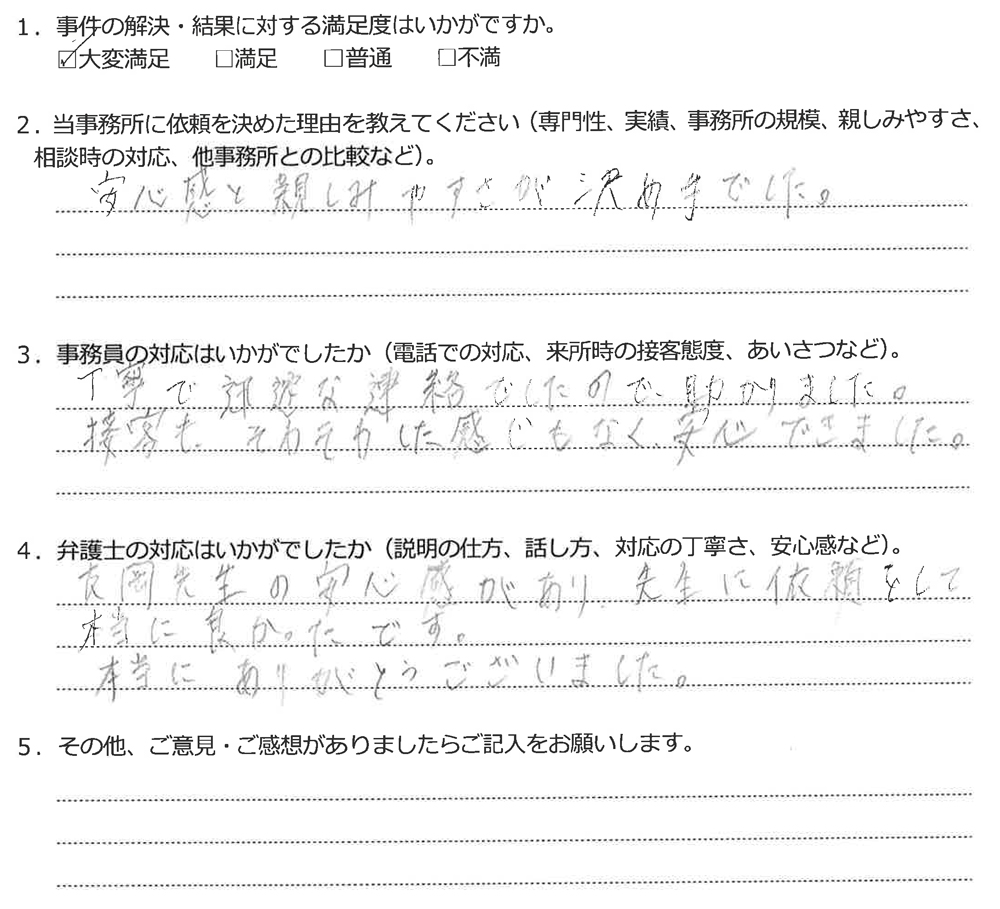 1. 事件の解決・結果に対する満足度はいかがですか。
☑大変満足 □満足 □普通 □不満
2. 当事務所に依頼を決めた理由を教えてください（専門性、実績、事務所の規模、親しみやすさ、
相談時の対応、他事務所との比較など）。
安心感と親しみやすさが決めまでした。
3. 事務員の対応はいかがでしたか（電話での対応、来所時の接客態度、あいさつなど）。
丁寧で迅速な連絡でしたので、助かりました。
接客も、そわそわした感じもなく、安心できました。
4. 弁護士の対応はいかがでしたか（説明の仕方、話し方、対応の丁寧さ、安心感など）。
吉岡先生の安心感があり、先生に依頼をして
本当に良かったです。
本当にありがとうございました。
5. その他、ご意見・ご感想がありましたらご記入をお願いします。